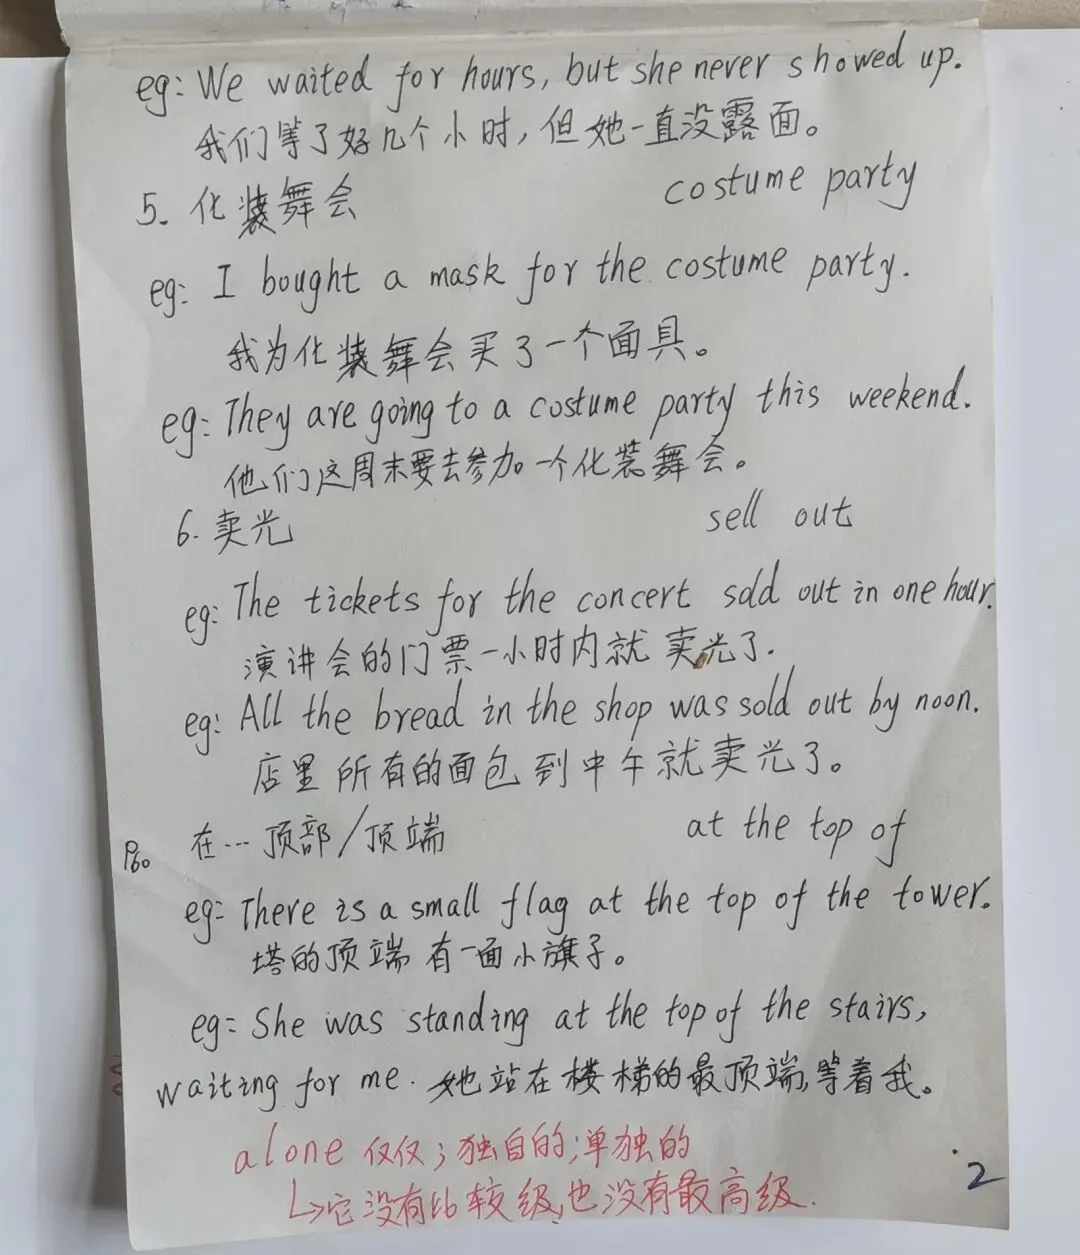 eg: We waited for hours, but she never showed up.
我们等了好几个小时，但她一直没露面。
5. 化装舞会 costume party
eg: I bought a mask for the costume party.
我为化装舞会买了一个面具。
eg: They are going to a costume party this weekend.
他们这周末要去参加一个化装舞会。
6. 卖光 sell out
eg: The tickets for the concert sold out in one hour.
演讲会的门票一小时内就卖光了.
eg: All the bread in the shop was sold out by noon.
店里所有的面包到中午就卖光了。
P60 在…顶部/顶端 at the top of
eg: There is a small flag at the top of the tower.
塔的顶端有一面小旗子。
eg: She was standing at the top of the stairs,
waiting for me. 她站在楼梯的最顶端,等着我。
alone 仅仅；独自的;单独的
↳它没有比较级,也没有最高级.
2